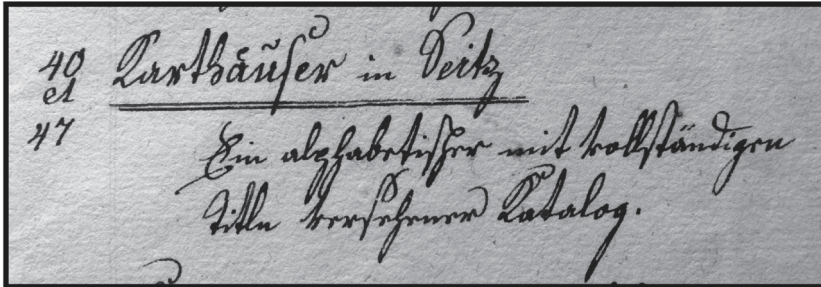 40 Karthäuser in Seitz
et
47
Ein alphabetischer mit vollständigen
Titln versehener Katalog.